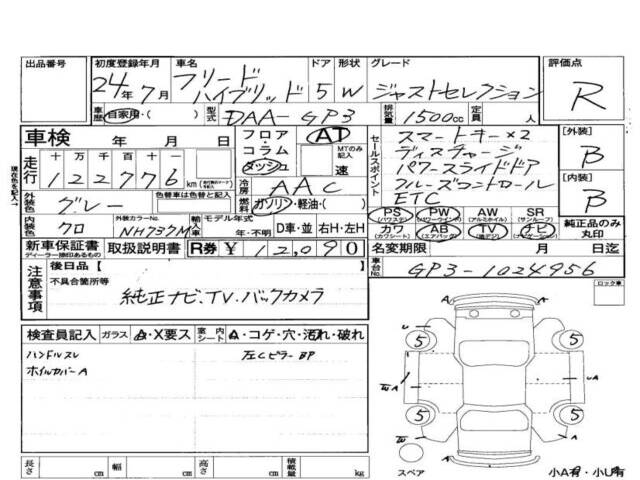 出品番号 初度登録年月 車名 ドア 形状 グレード 評価点
24年7月 フリードハイブリッド 5 W ジャストセレクション R
車歴 自家用・( ) 型式 DAA-GP3 排気量 1500cc 定員 人
車検 年 月 日
フロア コラム ダッシュ AT MTのみ記入 速
セールスポイント
スマートキー×2
ディスチャージ
パワースライドドア
クルーズコントロール
ETC
[外装] B
[内装] B
現在色を記入→
走行 十 万 千 百 十 一
122776 km
冷房 AAC
外装色 グレー 色替車は色替前色
燃料 ガソリン・軽油・( )
PS (パワステ) PW (パワーウインドウ) AW (アルミホイル) SR (サンルーフ)
カワ (カワシート) AB (エアバッグ) TV (地デジ) ナビ (ナビゲーション)
純正品のみ丸印
内装色 クロ 外装カラーNo. NH737M 輸入車 モデル年式 年・不明 D車・並 右H・左H
新車保証書 ディーラー捺印あるもの 取扱説明書 R券 ¥12,090 名変期限 月 日迄
注意事項 後日品【 】
不具合箇所等
純正ナビ、TV、バックカメラ
車台No. GP3-1024956
ロック車
検査員記入 ガラス A・X要ス 室内シート A・コゲ・穴・汚れ・破れ
ハンドルスレ 左Cピラー BP
ホイルカバーA
A
U
5 5
A
W A
UA
5 5
W
A
A
スペア
小A有・小U有
長さ cm 幅 cm 高さ cm 積載量 kg